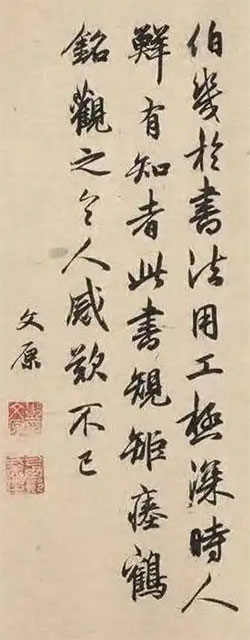 伯幾於書法用工極深時人
鮮有知者此書規矩瘞鶴
銘觀之令人感歎不已
文原